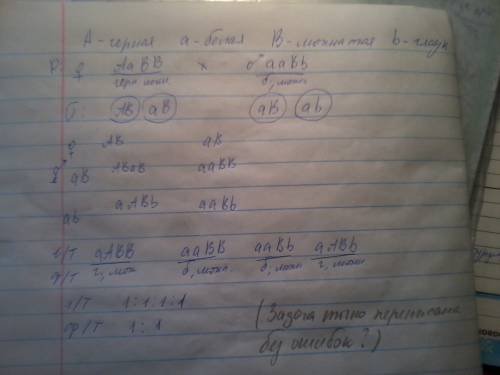 A-черная a-белая B-мохнатая b-гладк
P: ♀ AaBB x ♂ aaBb
черн мохн б, мохн
б: AB aB aB ab
♀ AB aB
♂ aB ABaB aaBB
ab aABb aaBb
г/т aABB aaBB aaBb aABb
ф/т г, мох б, мохн. б, мохн г, мохн
г/т 1:1:1:1
ф/т 1:1
(Задача точно переписана
без ошибок?)